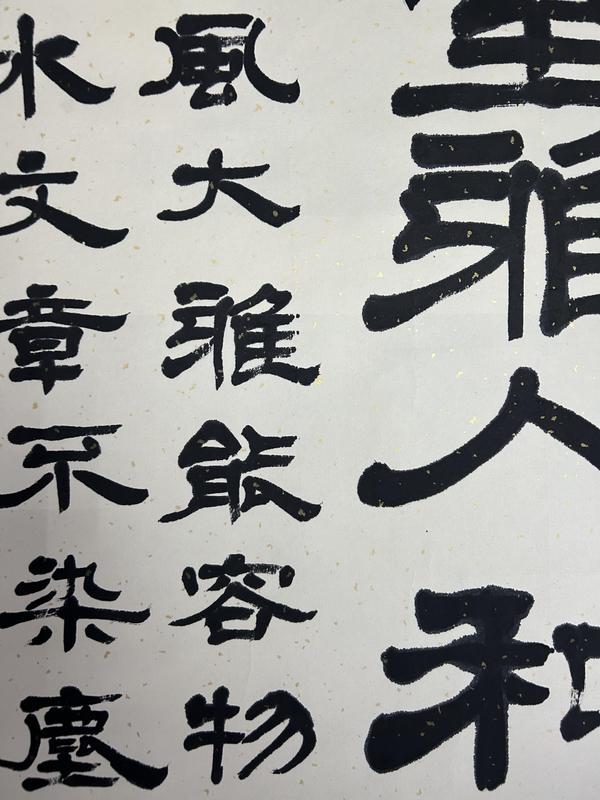 雅人和
風大雅能容物
水文章不染塵